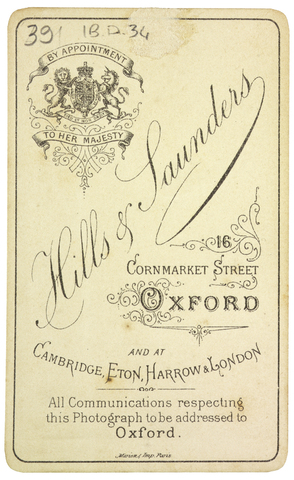 391 18.D.34
BY APPOINTMENT
TO HER MAJESTY
Hills & Saunders
16
CORNMARKET STREET
OXFORD
AND AT
CAMBRIDGE, ETON, HARROW & LONDON
All Communications respecting
this Photograph to be addressed to
Oxford.
Imp. Paris